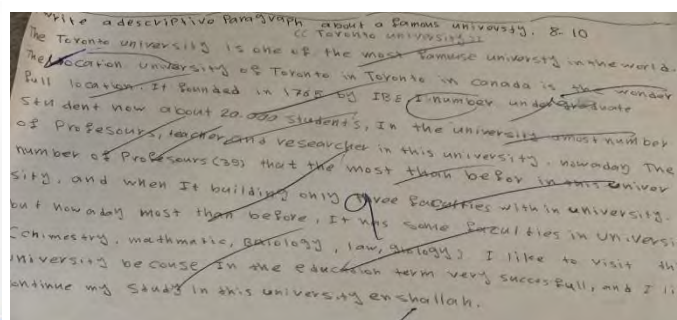 write a descriptive Paragraph about a famous univousty. 8-10
<< Toronto university >>
The Toronto university is one of the most famuse universty in the world.
The location university of Toronto in Toronto in canada is the wonder
full location. It founded in 1765 by IBE I number undergraduate
student now about 20.000 student's, In the university most number
of Professours, teacher and researcher in this university. nowaday The
number of Professours (39) that the most than befor in this univer
sity, and when It building only three faculties with in university.
but now aday most than before, It has some faculties in universi
(chimestry, mathmatic, Baiology, law, ) I like to visit th
university becouse In the education term very succesfull, and I li
ontinue my study in this university enshallah.